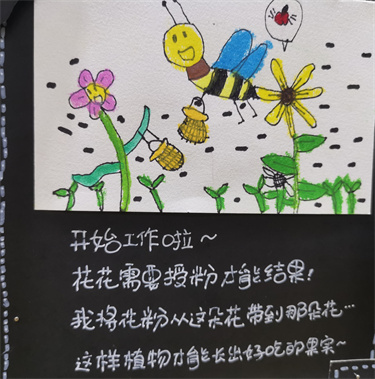 开始工作啦~
花花需要授粉才能结果!
我将花粉从这朵花带到那朵花…
这样植物才能长出好吃的果实~